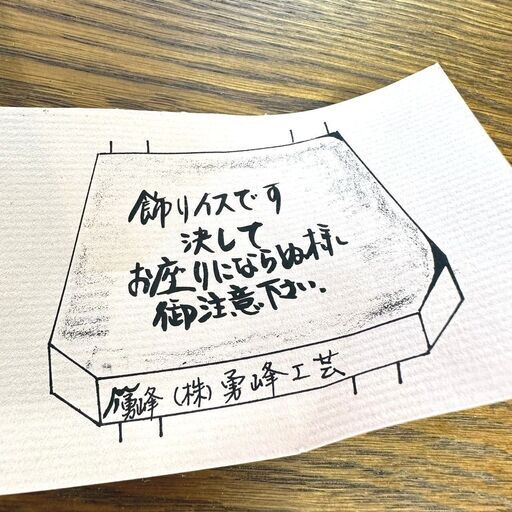 飾りイスです
決して
お座りにならぬ様
御注意下さい.
(株)勇峰工芸